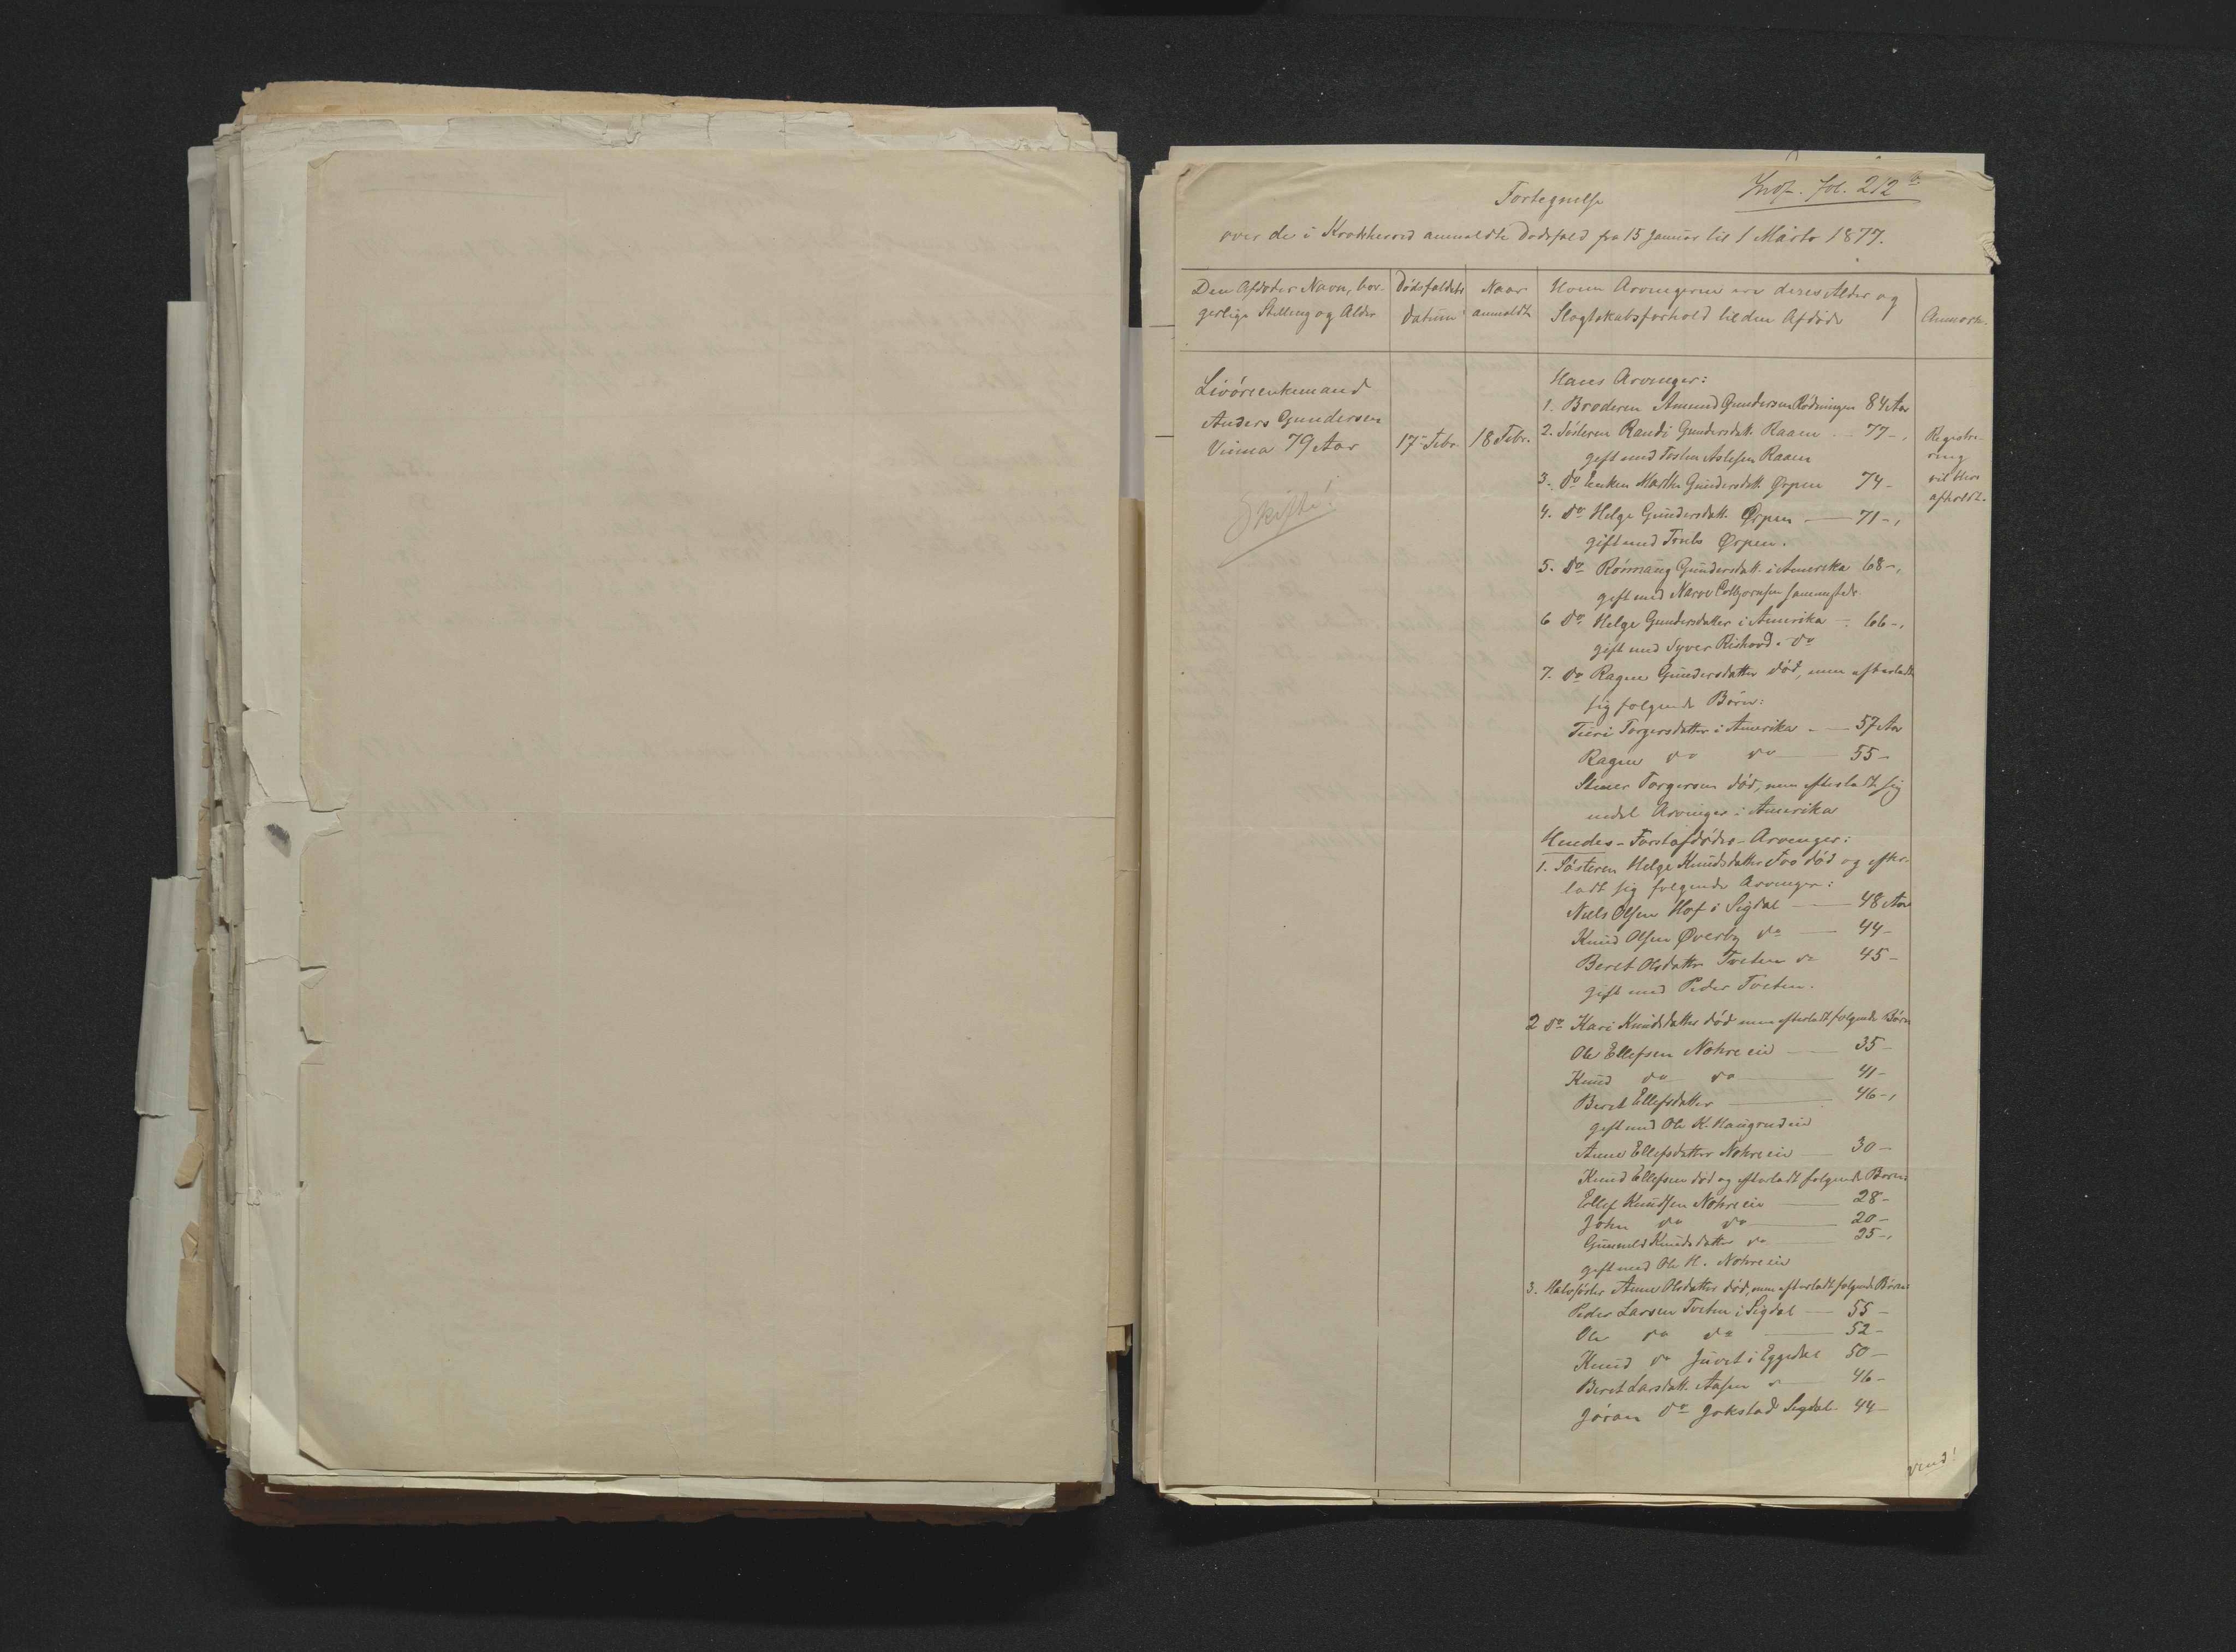 Fol. 212 b
Fortegnelse
over de i Krødsherred anmeldte Dødsfald fra 15 Januar til 1 Marts 1877.
Den Afdødes Navn, bor-
gerlige Stilling og Alder
Dødsfaldets
Datum
Naar
anmeldt
Hvem Arvingerne ere deres Alder og
Slægtskabsforhold til den Afdøde
Anmærk.
Livøreenkemand
Anders Gundersen
79 Aar
17 Febr.
18 Febr.
Skifte!
Registre-
ring
vil blive
afholdt.
Hans Arvinger:
1. Broderen Amund Gundersen 84 Aar
2. Søsteren Randi Gundersdatt. Raaen - 77 -,
gift med Aslesen Raaen
3. Do Enken Marthe Gundersdatt. Ørpen 74 -
4. Do Helge Gundersdatt. Ørpen - 71 -,
gift med Truls Ørpen.
5. Do Gundersdatt. i Amerika 68 -,
gift med Narve sammesteds
6 Do Helge Gundersdatter i Amerika - 66 -,
gift med Syver Rishovd. do
7. Do Ragne Gundersdatter død, men efterladt
sig følgende Børn:
Torgersdatter i Amerika - 57 Aar
Ragne do do 55 -
Stener Torgersen død, men efterladt sig
endel Arvinger i Amerika
Hendes - Førstafdødes - Arvinger:
1. Søsteren Helge Knudsdatter død og efter-
ladt sig følgende Arvinger:
Niels Olsen Hof i Sigdal - 48 Aar
Knud Olsen Øverby do - 44 -
Beret Olsdatter Tveten do 45 -
gift med Peder Tveten.
2 Do Kari Knudsdatter død men efterladt følgende Børn
Ole Ellefsen Nohre eie - 35 -
Knud do do - 41 -
Beret Ellefsdatter - 46 -,
gift med Ole K. Haugrud eie
Anne Ellefsdatter Nohre eie - 30 -
Knud Ellefsen død og efterladt følgende Børn:
Ellef Knudsen Nohre eie - 28 -
John do do - 20 -
Gunnild Knudsdatter do - 25 -,
gift med Ole H. Nohre eie
3. Halvsøster Anne Olsdatter død, men efterladt følgende Børn:
Peder Larsen Tveten i Sigdal - 55 -
Ole do do - 52 -
Knud do Juvet i Eggedal 50 -
Beret Larsdatt. Aasen do - 46 -
Jøran Do Jokstad Sigdal. 44 -
Vend!